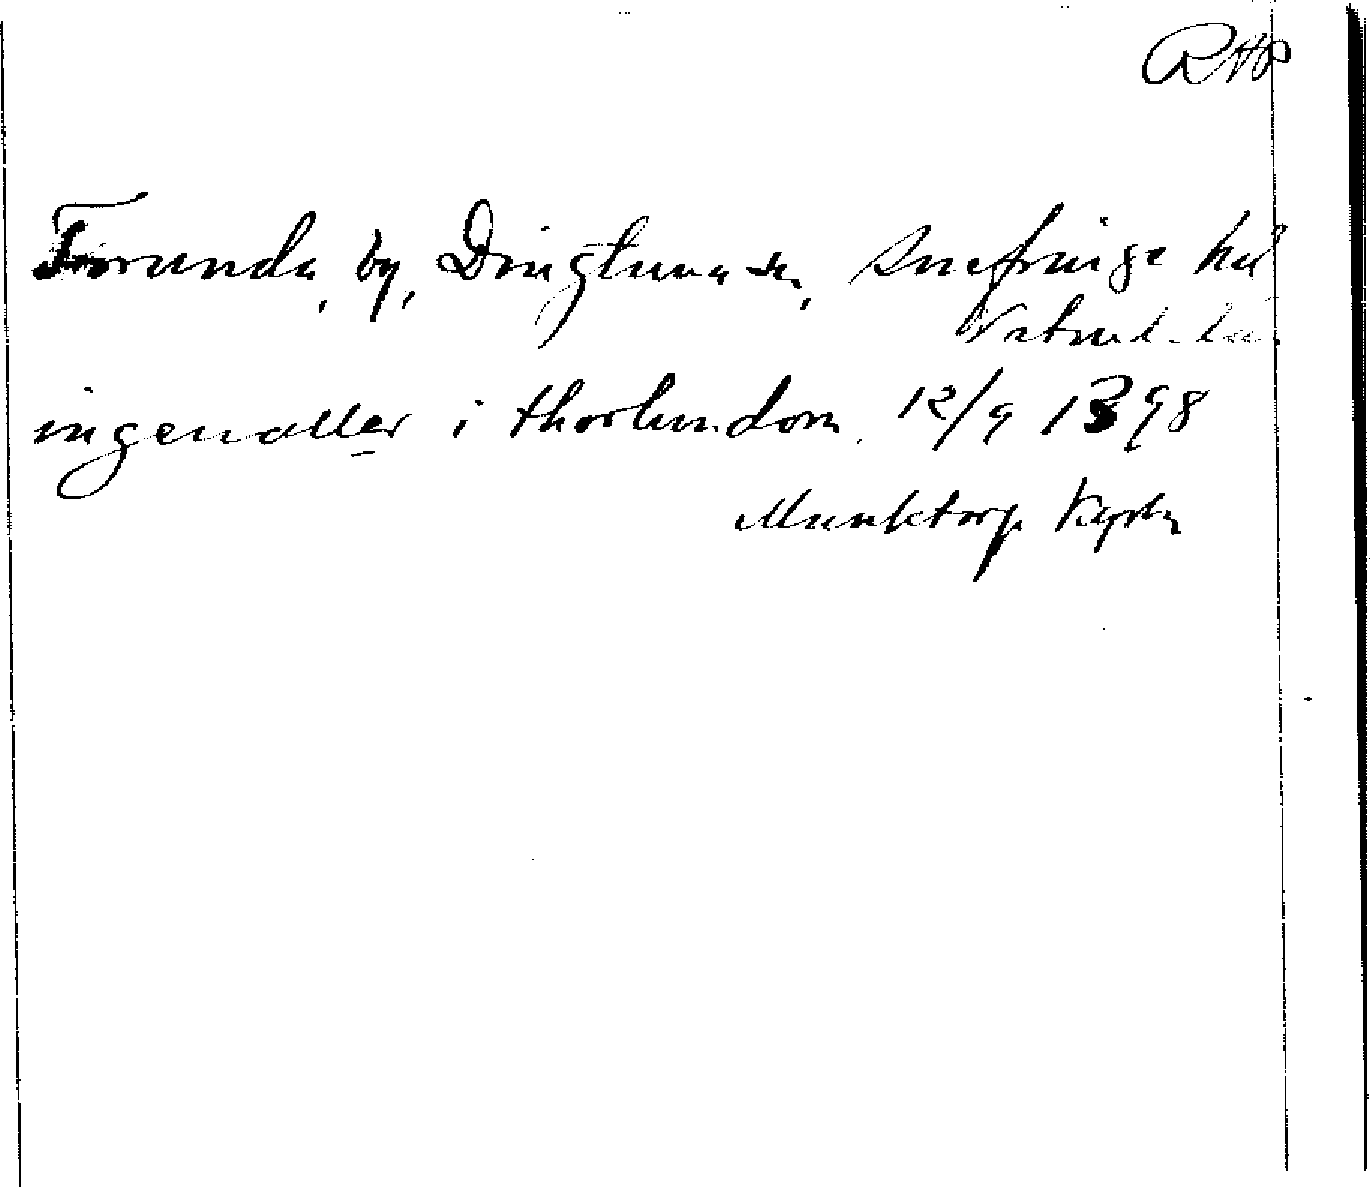 RAP
Torunda, by, Dingtuna sn, Snefringe hd
Västml. län
ingeualder i thorlundom. 12/9 1398
Munktorp Kyrka